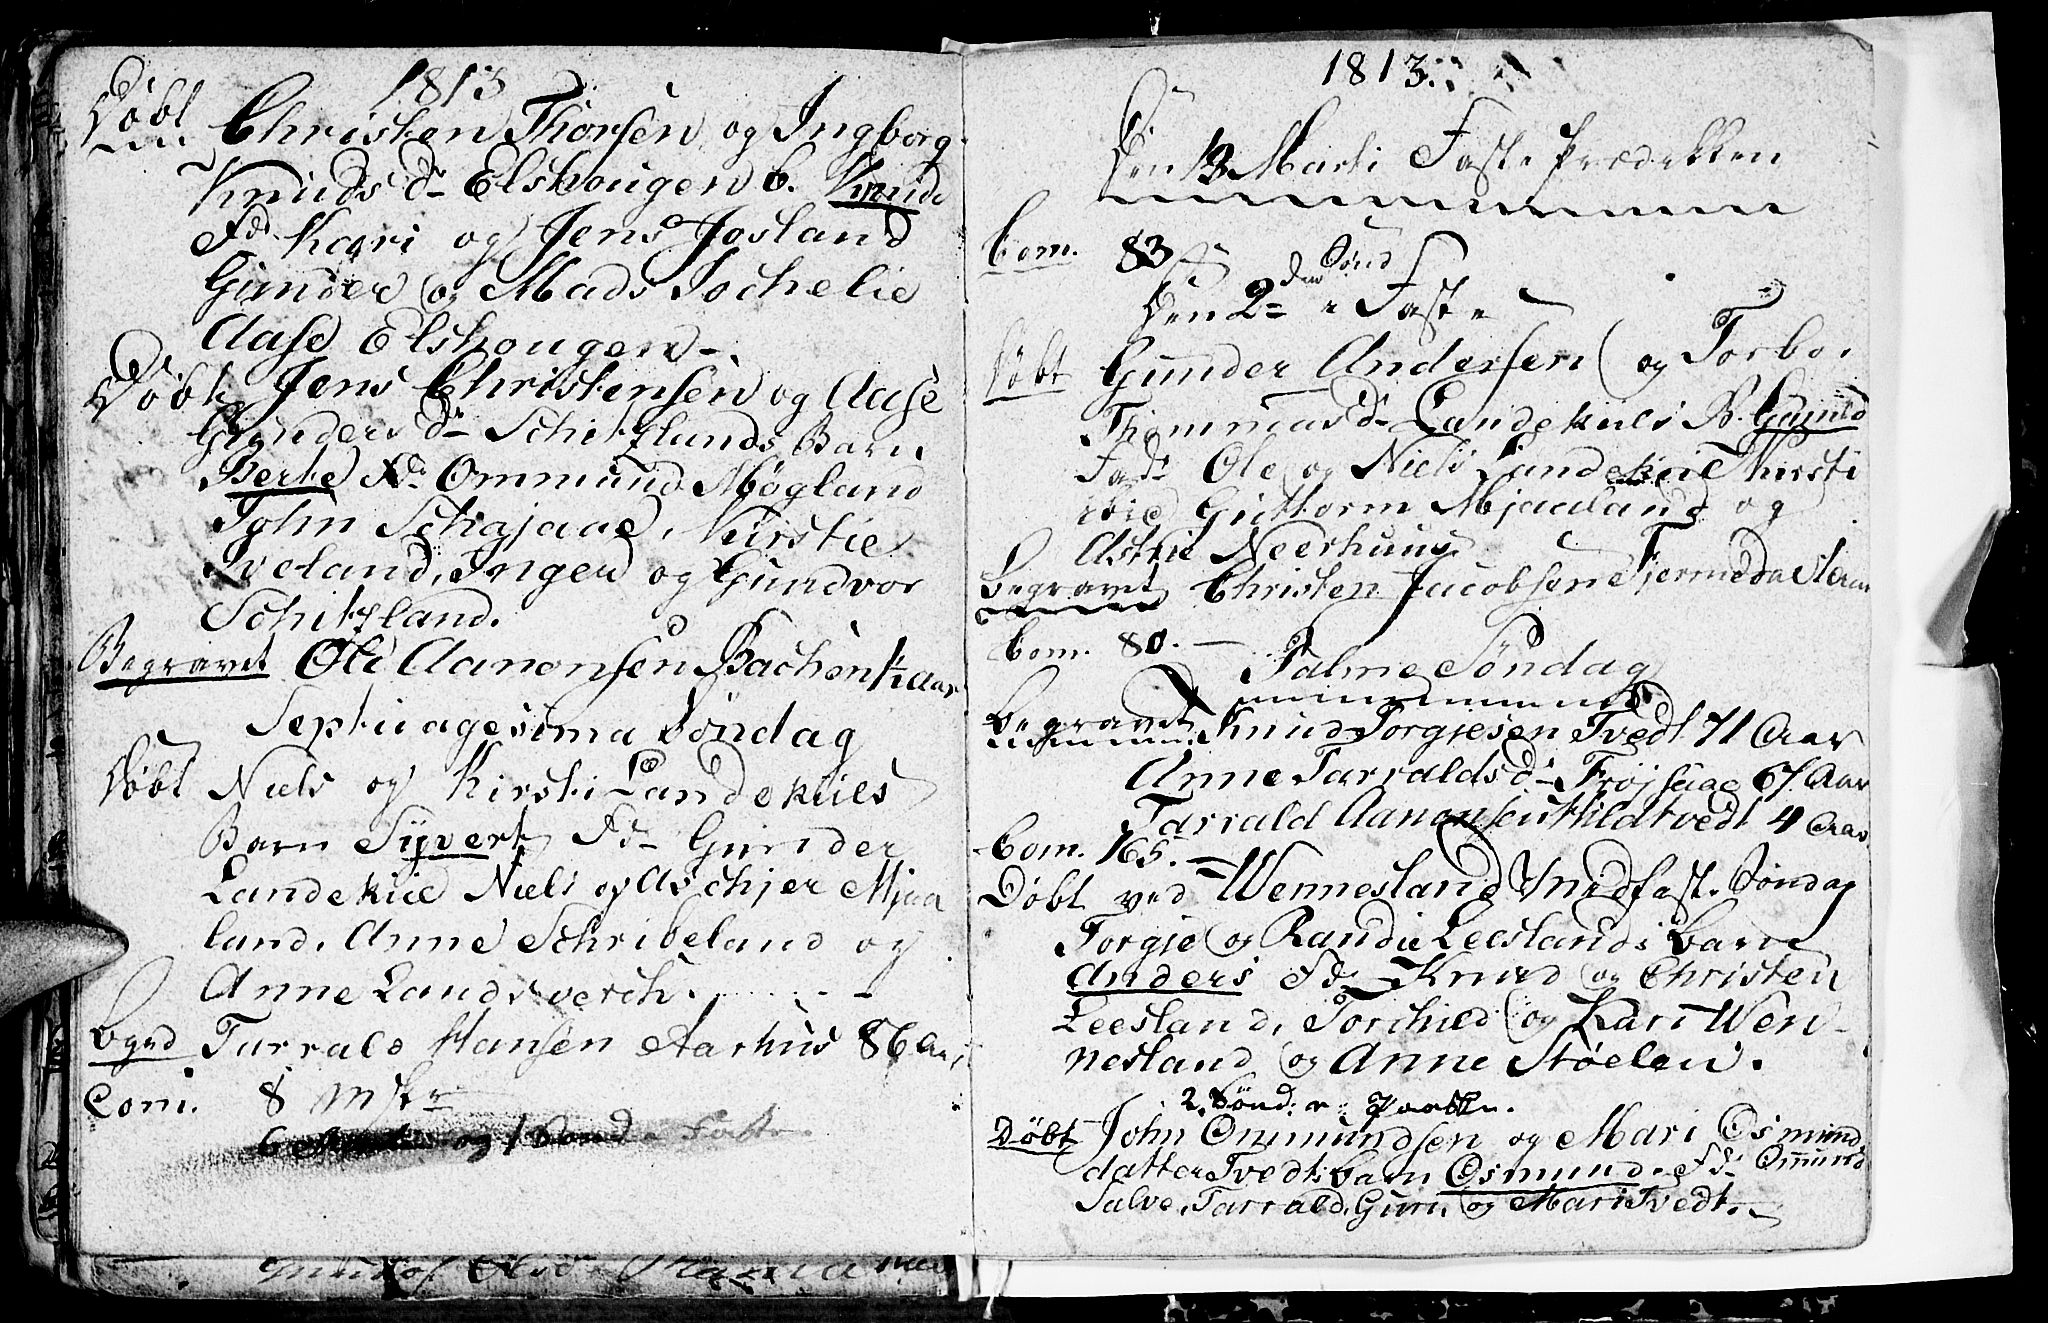 1813
Døbt Christen Thorsen og Ingborg
Knuds d Elshougen b. Knud
Fd Kari og Jens Josland
Gunder og Mads Jochelie
Aase Elshougen
Døbt Jens Christensen og Aase
Gunders d Schitzlands Barn
Berte Fd Ommund Møgland
John Schajaae, Kirstie
Iveland, Inger og Gundvor
Schitzland.
Begravet Ole Aanonsen Bachen Aar
Septuagesima Søndag
Døbt Niels og Kirsti Landekiles
Barn Syvert Fd Gunder
Landekiie Niels og Aschjer Mjaa
land. Anne Schribeland og
Anne Landsverch.
Bgrd Tarrald Hansen Aarhus 86 Aar
Com. 8
og 1 Sønd Faste
1813
Den 13 Marti Faste Prædekken
Com. 83
Den 2den Sønd e Faste
Døbt Gunder Andersen og Torbor
Thommasd Landekiles B. Gunild
Fad Ole og Niels Landekiie Kirsti
ibid Guttorm Mjaaland og
Astrie Neerhuus.
Begravet Christen Jacobsen Fjermedal
Com. 80.
Palme Søndag
Begravet Knud Torgjesen Tvedt 71 Aar
Anne Tarraldsd Frøjsaae 67 Aar
Tarrald Aanonsen Hildtvedt 4 Aar
Com. 165.
Døbt ved Wennesland Midfast. Søndag
Torgje og Randie Leeslands Barn
Anders Fd Knud og Christen
Leesland, Torchild og Kari Wen-
nesland og Anne Støelen.
2. Sønd. e. Paaske.
Døbt John Ommundsen og Mari Osmund
datter Tvedts barn Osmund. Fd Ommund
Salve, Tarrald, Guri og Mari Tvedt.